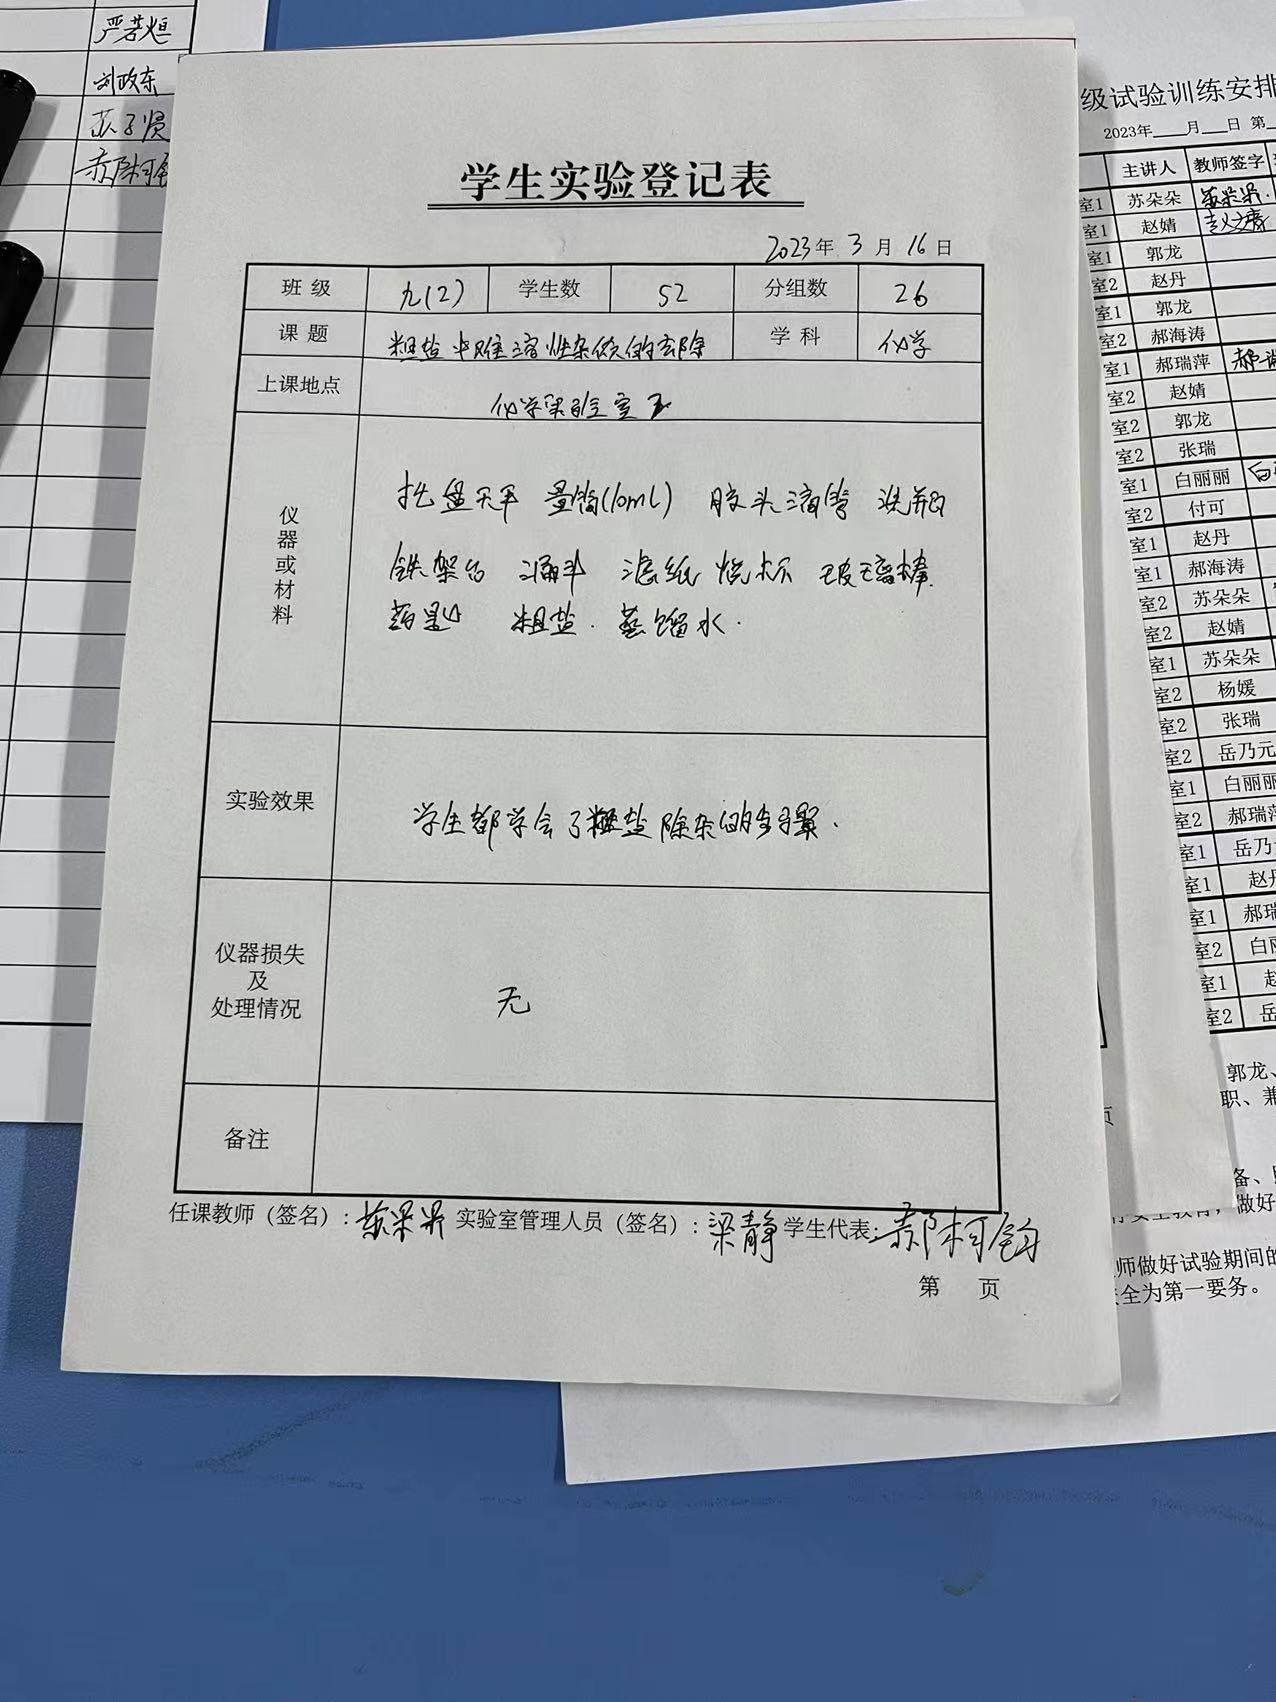 严若烜
刘政东
苏子贤
郝柯钧
学生实验登记表
2023年 3月 16日
班 级 九(2) 学生数 52 分组数 26
课 题 粗盐中难溶性杂质的去除 学 科 化学
上课地点 化学实验室
仪器或材料
托盘天平 量筒(10mL) 胶头滴管 洗瓶
铁架台 漏斗 滤纸 烧杯 玻璃棒
药匙 粗盐. 蒸馏水.
实验效果 学生都学会了粗盐除杂的步骤.
仪器损失
及
处理情况
无
备注
任课教师（签名）: 苏朵朵 实验室管理人员（签名）: 梁静 学生代表: 郝柯钧
第 页
级试验训练安排
2023年___月___日 第
主讲人 教师签字
室1 苏朵朵 苏朵朵.
室1 赵婧 赵婧
室1 郭龙
室2 赵丹
室1 郭龙
室2 郝海涛
室1 郝瑞萍
室2 赵婧
室2 郭龙
室2 张瑞
室1 白丽丽 白
室2 付可
室1 赵丹
室1 郝海涛
室2 苏朵朵
室2 赵婧
室1 苏朵朵
室2 杨媛
室2 张瑞
室2 岳乃元
室1 白丽丽
室2 郝瑞萍
室1 岳乃
室1 赵丹
室1 郝瑞
室2 白丽
室1 赵
室2 岳
郭龙、
职、兼
页
备、
做好
师做好试验期间的
全为第一要务。